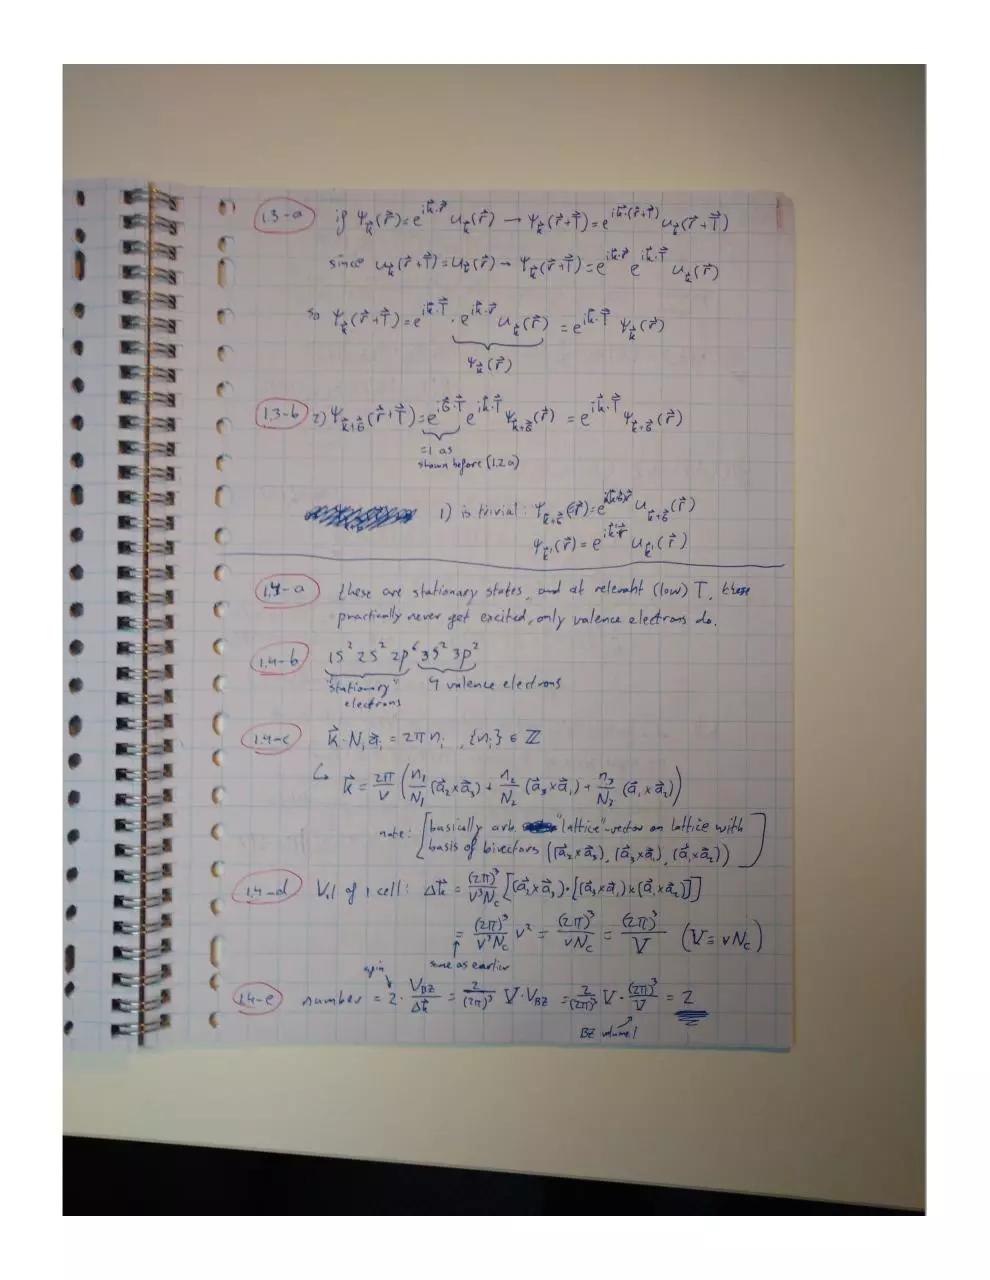 1.3-a if ψ_k⃗(r⃗)=e^{ik⃗·r⃗} u_k⃗(r⃗) → ψ_k⃗(r⃗+T⃗)=e^{ik⃗·(r⃗+T⃗)} u_k⃗(r⃗+T⃗)
since u_k⃗(r⃗+T⃗)=u_k⃗(r⃗) → ψ_k⃗(r⃗+T⃗)=e^{ik⃗·r⃗} e^{ik⃗·T⃗} u_k⃗(r⃗)
so ψ_k⃗(r⃗+T⃗)=e^{ik⃗·T⃗} · e^{ik⃗·r⃗} u_k⃗(r⃗) = e^{ik⃗·T⃗} ψ_k⃗(r⃗)
ψ_k⃗(r⃗)
1.3-b 2) ψ_{k⃗+G⃗}(r⃗+T⃗)=e^{iG⃗·T⃗} e^{ik⃗·T⃗} ψ_{k⃗+G⃗}(r⃗) = e^{ik⃗·T⃗} ψ_{k⃗+G⃗}(r⃗)
=1 as
shown before (1.2a)
1) is trivial: ψ_{k⃗+G⃗}(r⃗)=e^{i(k⃗+G⃗)·r⃗} u_{k⃗+G⃗}(r⃗)
ψ_{k⃗'}(r⃗)=e^{ik⃗'·r⃗} u_{k⃗'}(r⃗)
1.4-a these are stationary states, and at relevant (low) T, these
practically never get excited, only valence electrons do.
1.4-b 1s² 2s² 2p⁶ 3s² 3p²
"stationary" 4 valence electrons
electrons
1.4-c k⃗·N_i a⃗_i = 2π n_i , {n_i} ∈ ℤ
↳ k⃗ = 2π/v (n₁/N₁ (a⃗₂×a⃗₃) + n₂/N₂ (a⃗₃×a⃗₁) + n₃/N₃ (a⃗₁×a⃗₂))
note: [basically arb. "lattice"-vector on lattice with
basis of bivectors ((a⃗₂×a⃗₃), (a⃗₃×a⃗₁), (a⃗₁×a⃗₂))]
1.4-d Vol of 1 cell: Δk⃗ = (2π)³/v³N_c [(a⃗₂×a⃗₃)·[(a⃗₃×a⃗₁)×(a⃗₁×a⃗₂)]]
= (2π)³/v³N_c v² = (2π)³/vN_c = (2π)³/V (V = vN_c)
same as earlier
spin
1.4-e number = 2 · V_BZ/Δk⃗ = 2/(2π)³ V·V_BZ = 2/(2π)³ V · (2π)³/V = 2
BZ volume!